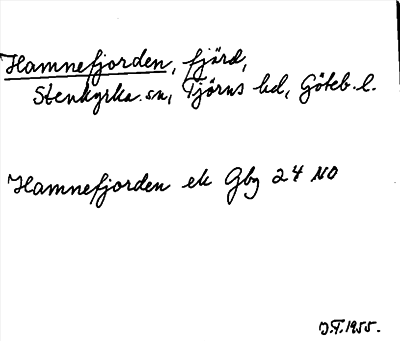 Hamnefjorden, fjärd,
Stenkyrka sn, Tjörns hd, Göteb. l.
Hamnefjorden ek Gbg 24 NO
J.F. 1955.